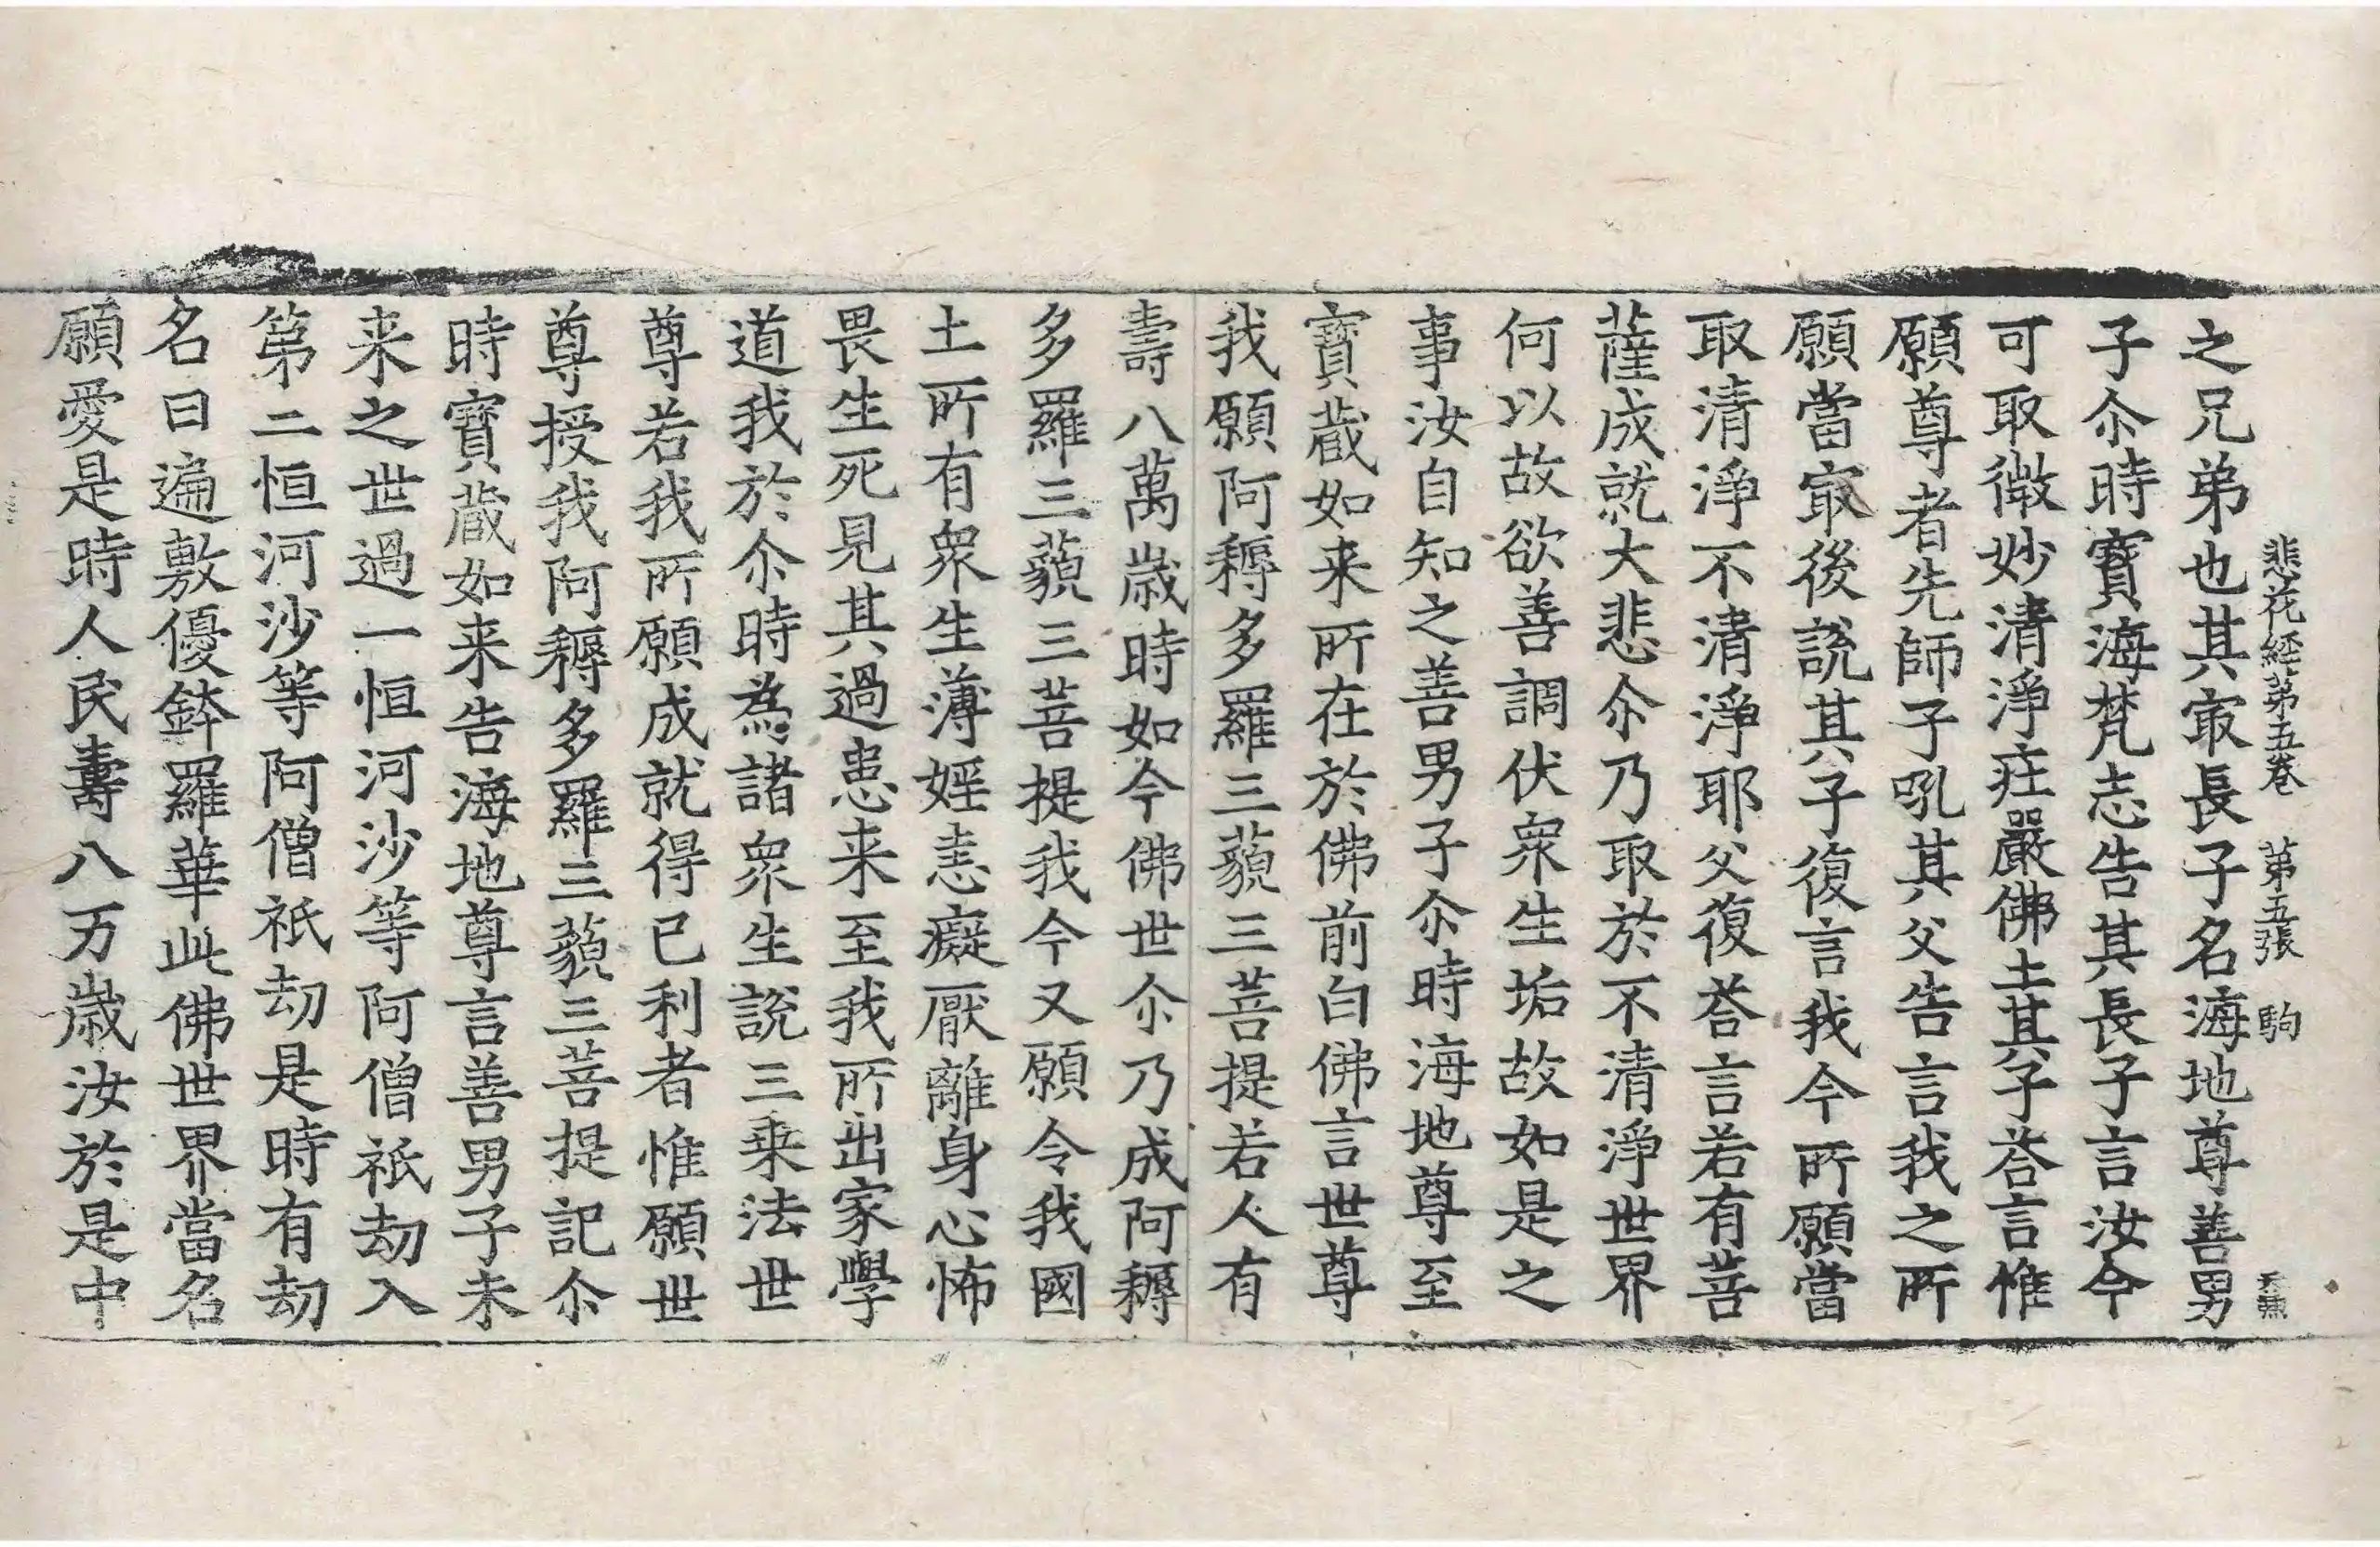 悲花経苐五卷　苐五張　駒　天無
之兄弟也其㝡長子名海地尊善男
子尒時寳海梵志告其長子言汝今
可取微妙清淨庄嚴佛土其子荅言惟
願尊者先師子吼其父告言我之所
願當㝡後說其子復言我今所願當
取清淨不清淨耶父復荅言若有菩
薩成就大悲尒乃取於不清淨世界
何以故欲善調伏衆生垢故如是之
事汝自知之善男子尒時海地尊至
寳蔵如来所在於佛前白佛言世尊
我願阿耨多羅三藐三菩提若人有
壽八萬歳時如今佛世尒乃成阿耨
多羅三藐三菩提我今又願令我國
土所有衆生薄婬恚癡厭離身心怖
畏生死見其過患来至我所出家學
道我於尒時為諸衆生說三乗法世
尊若我所願成就得已利者惟願世
尊授我阿耨多羅三藐三菩提記尒
時寳蔵如来告海地尊言善男子未
来之世過一恒河沙等阿僧祇劫入
苐二恒河沙等阿僧祇劫是時有劫
名曰遍敷優鉢羅華此佛世界當名
願愛是時人民壽八万歳汝於是中